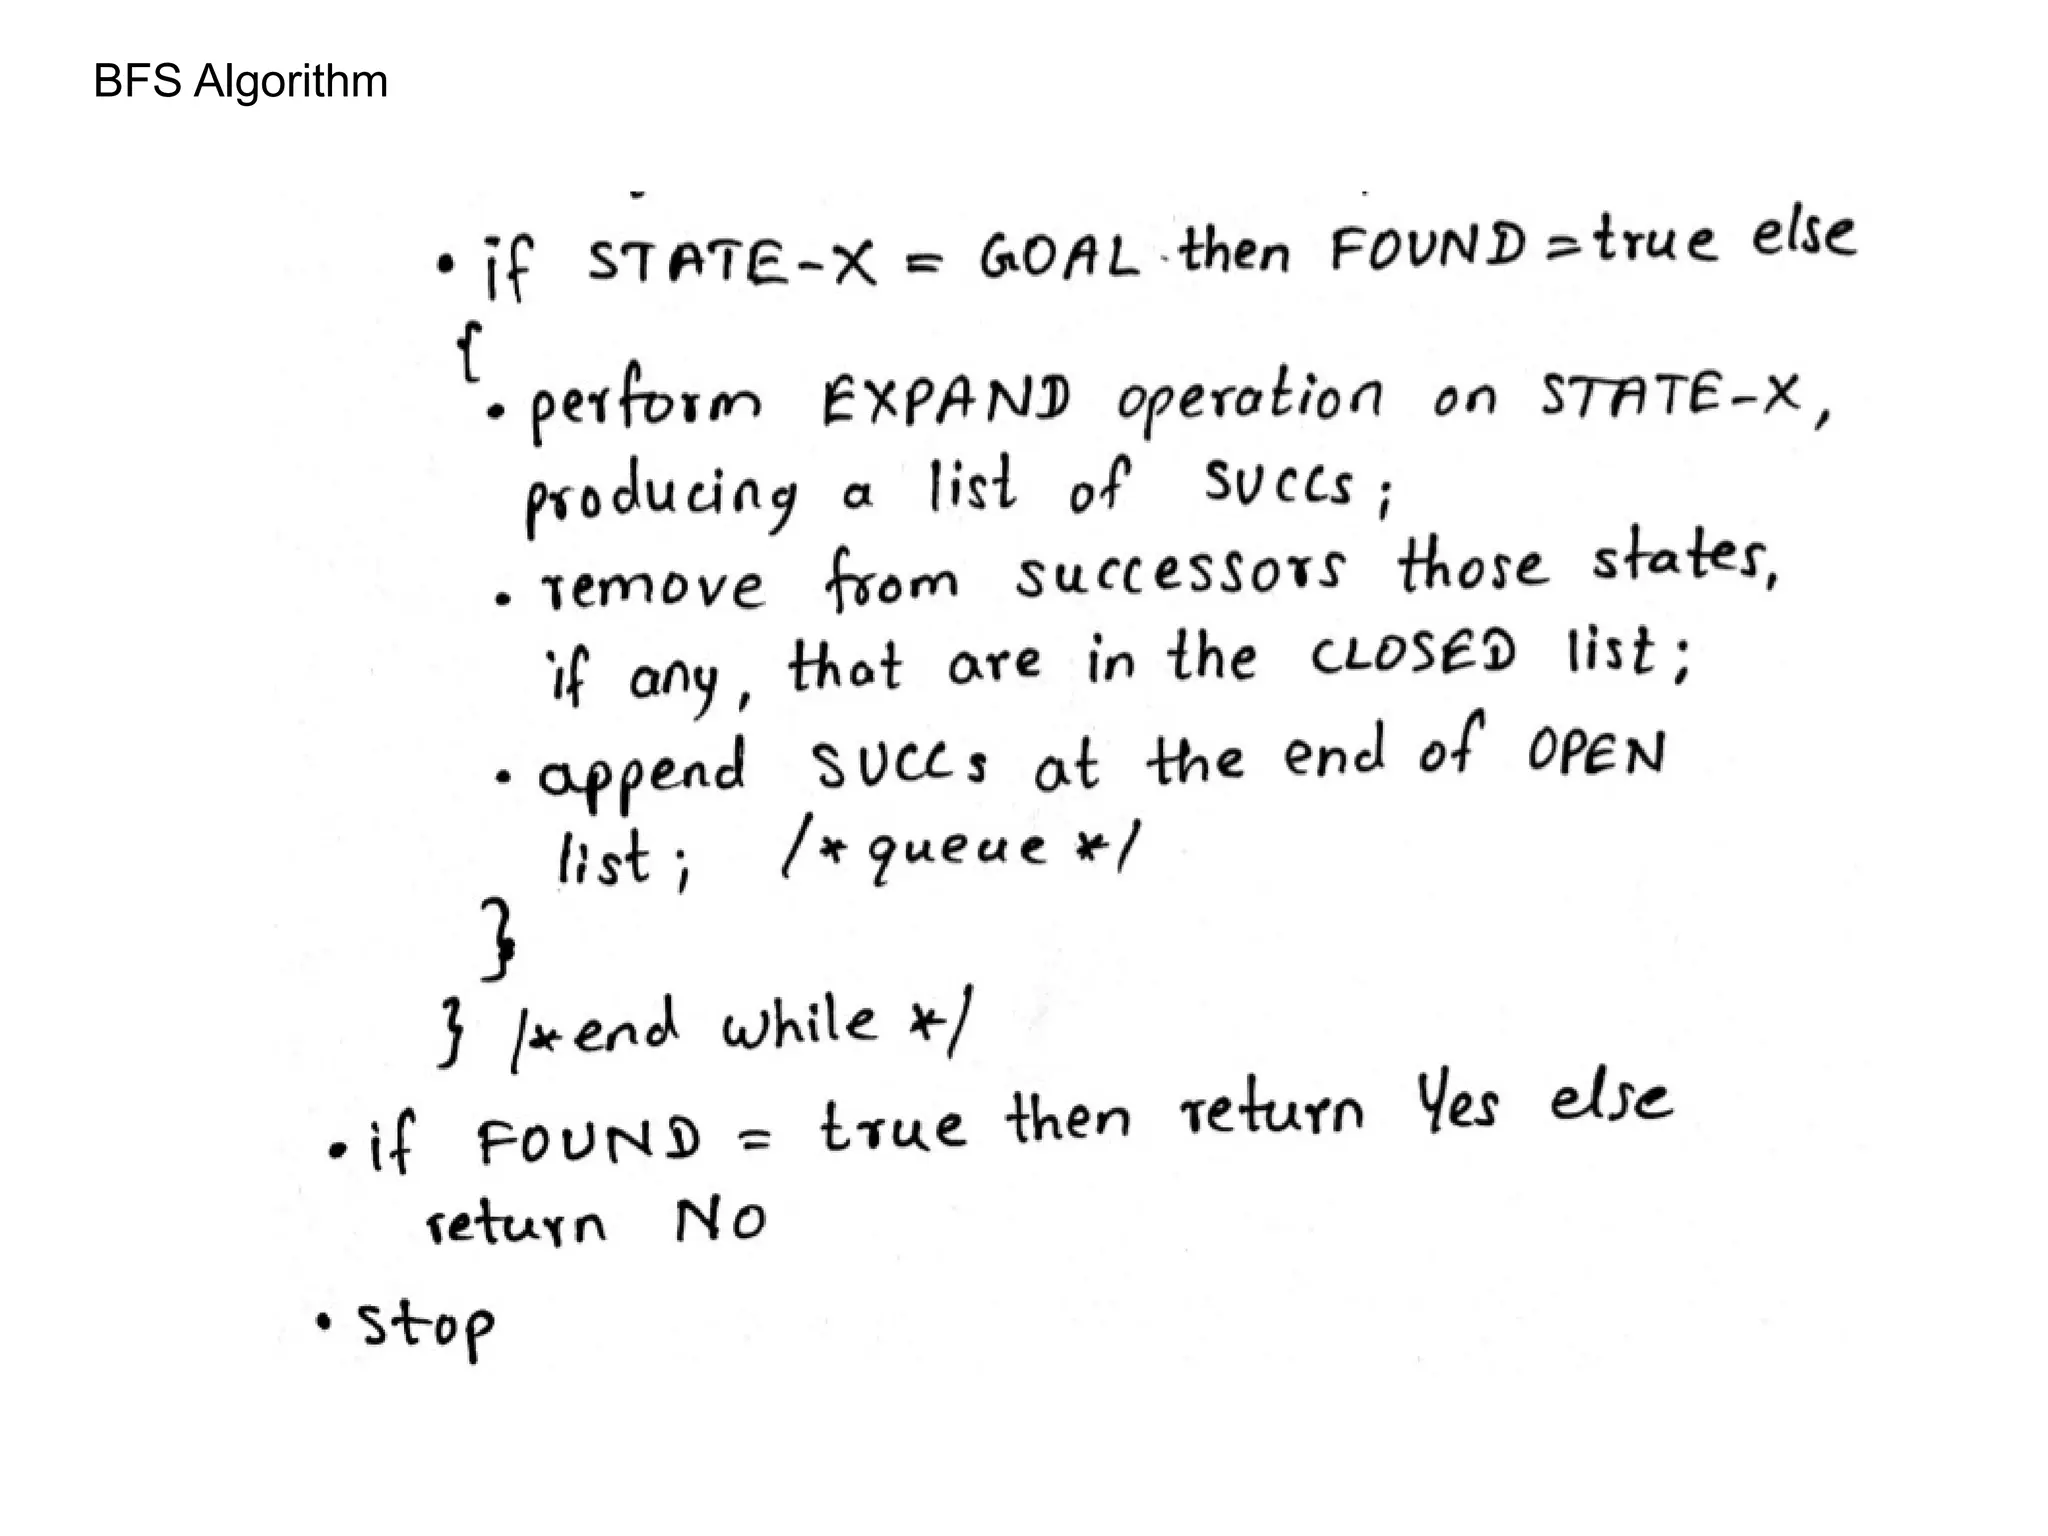 BFS Algorithm
• if STATE-X = GOAL then FOUND = true else
{
• perform EXPAND operation on STATE-X,
producing a list of SUCCs;
• remove from successors those states,
if any, that are in the CLOSED list;
• append SUCCs at the end of OPEN
list; /* queue */
}
} /* end while */
• if FOUND = true then return Yes else
return No
• stop